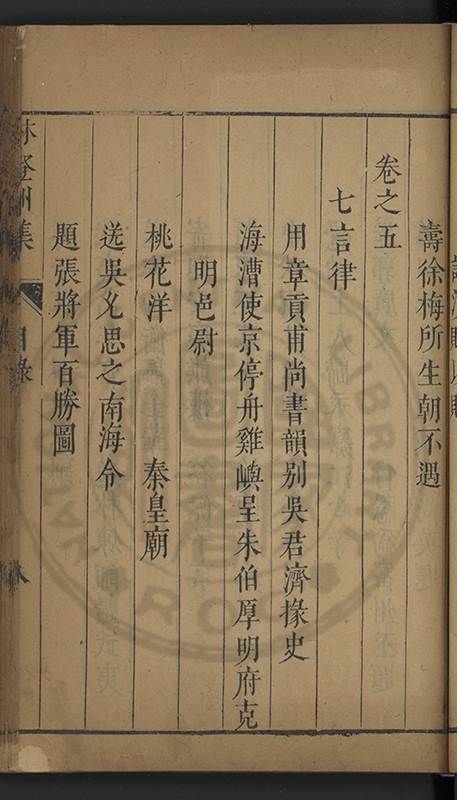 壽徐梅所生朝不遇
卷之五
七言律
用章貢甫尚書韻别吳君濟掾史
海漕使京停舟雞嶼呈朱伯厚明府克
明邑尉
桃花洋 秦皇廟
送吳乂思之南海令
題張將軍百勝圖
林登州集 目錄